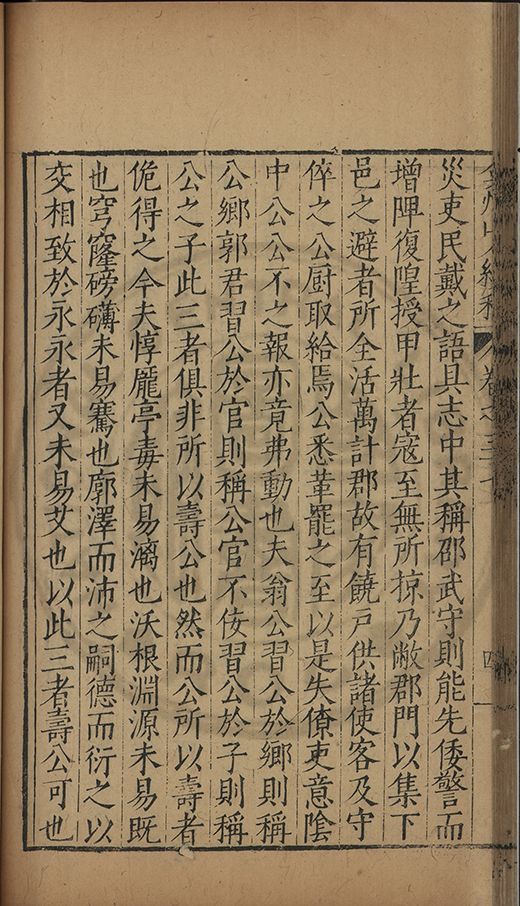 弇州山人續稿 卷之三十 四
災吏民戴之語具志中其稱邵武守則能先倭警而
增陴復隍授甲壯者寇至無所掠乃敝郡門以集下
邑之避者所全活萬計郡故有饒戶供諸使客及守
倅之公廚取給焉公悉革罷之至以是失僚吏意陰
中公公不之報亦竟弗動也夫翁公習公於鄉則稱
公鄉郭君習公於官則稱公官不佞習公於子則稱
公之子此三者俱非所以壽公也然而公所以壽者
佹得之今夫惇龐亭毒未易漓也沃根淵源未易既
也穹窿磅礴未易騫也廓澤而沛之嗣德而衍之以
交相致於永永者又未易艾也以此三者壽公可也